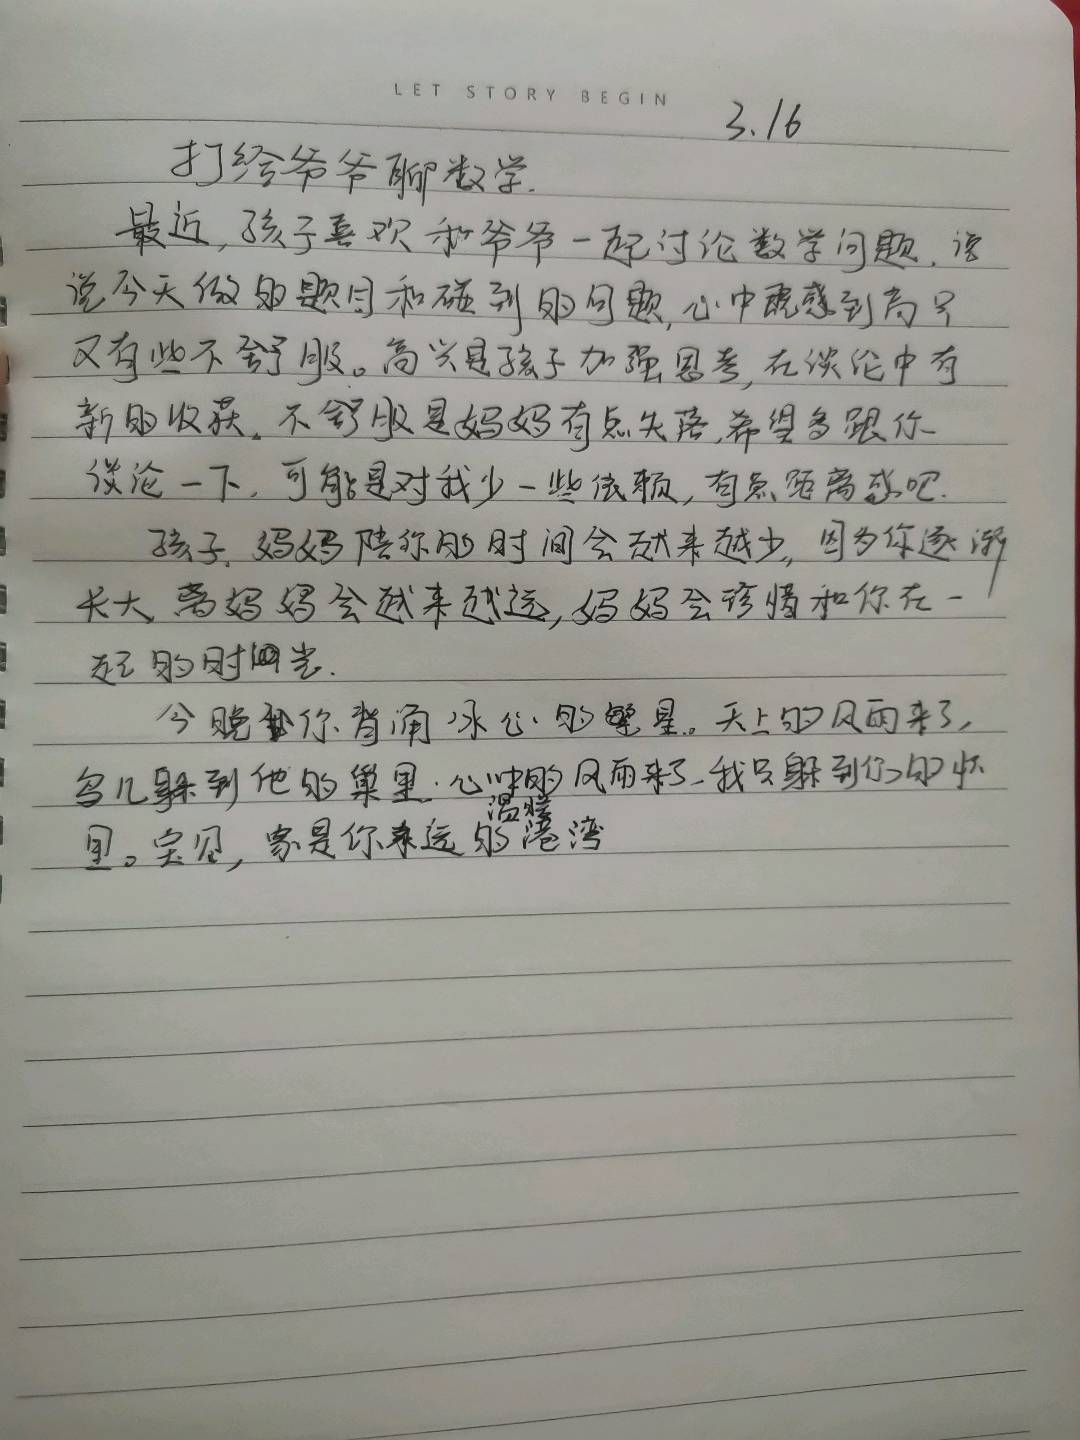 LET STORY BEGIN
3.16
打给爷爷聊数学.
最近,孩子喜欢和爷爷一起讨论数学问题,
说今天做的题目和碰到的问题,心中既感到高兴
又有些不舒服。高兴是孩子加强思考,在谈论中有
新的收获。不舒服是妈妈有点失落,希望多跟你
谈论一下,可能是对我少一些依赖,有点距离感吧.
孩子,妈妈陪你的时间会越来越少,因为你逐渐
长大,离妈妈会越来越远,妈妈会珍惜和你在一
起的时光.
今晚你背诵冰心的繁星。天上的风雨来了,
鸟儿躲到他的巢里.心中的风雨来了,我只躲到你的怀
里。宝贝,家是你永远的温暖港湾